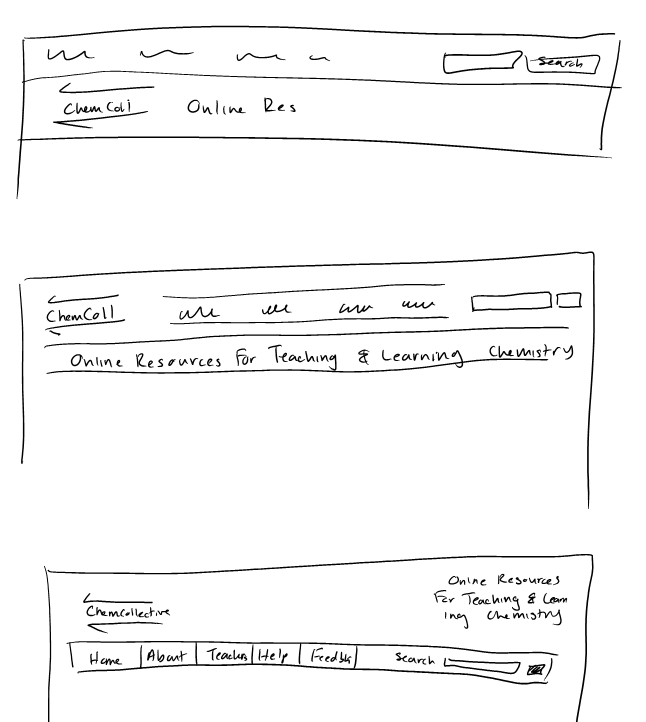 Search
ChemColl Online Res
ChemColl
Online Resources For Teaching & Learning Chemistry
Online Resources
For Teaching & Learn
ing Chemistry
ChemCollective
Home About Teachers Help Feedbk Search